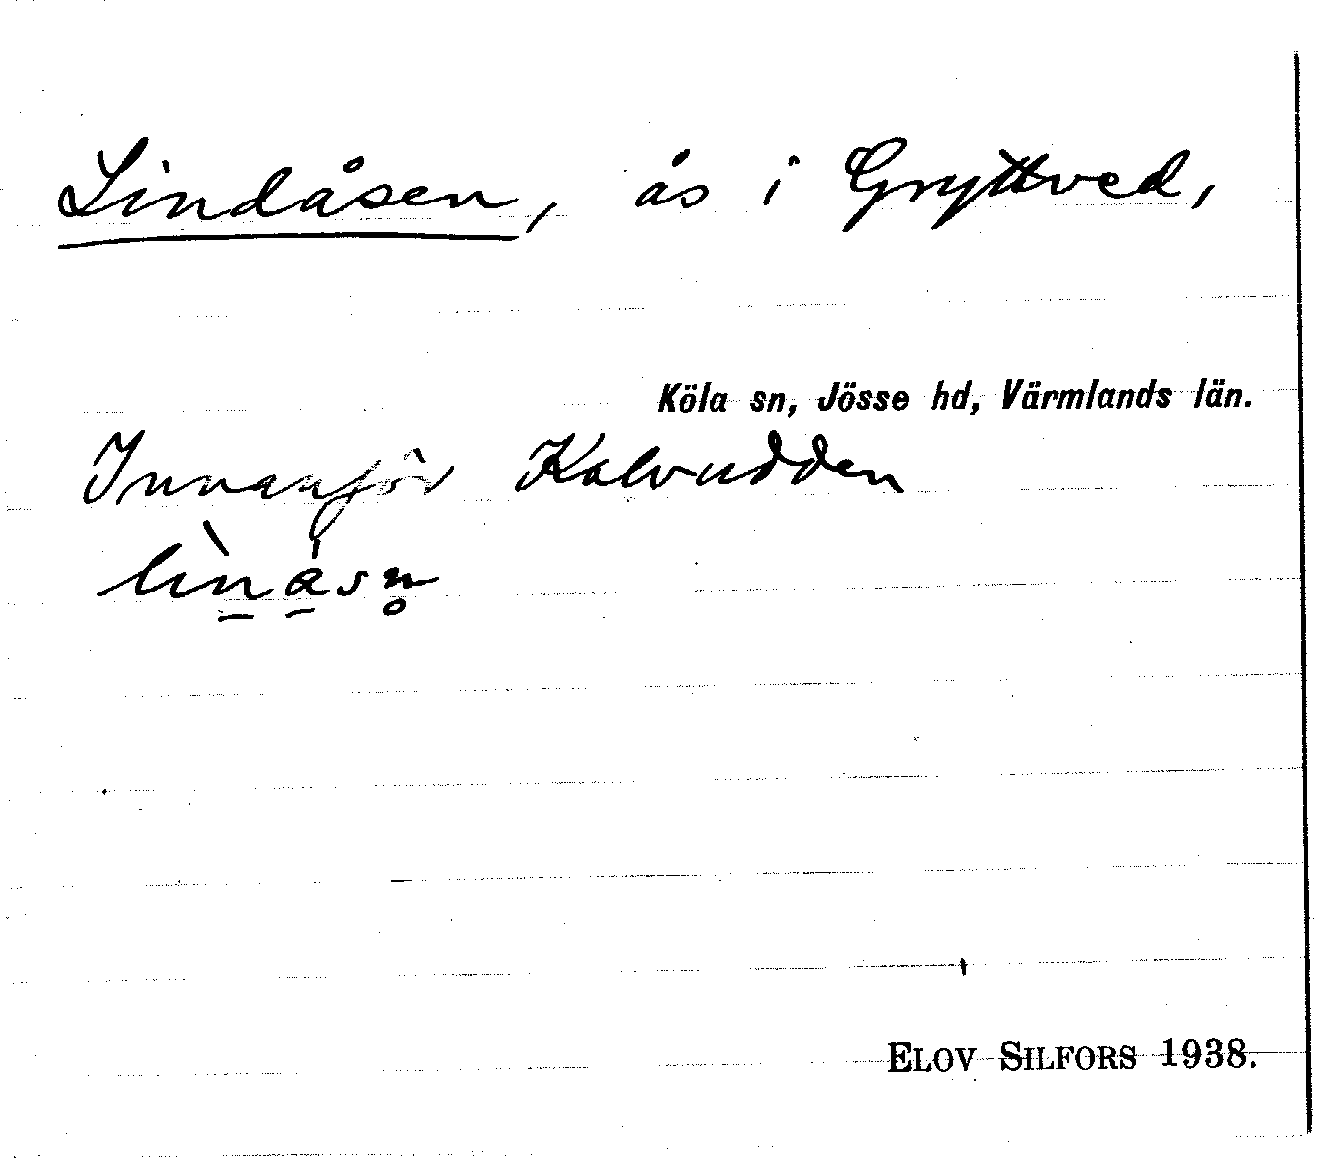 Lindåsen, ås i Gryttved,
Köla sn, Jösse hd, Värmlands län.
Innanför Kalvudden
lìn̲a̲̍sn̥
ELOV SILFORS 1938.